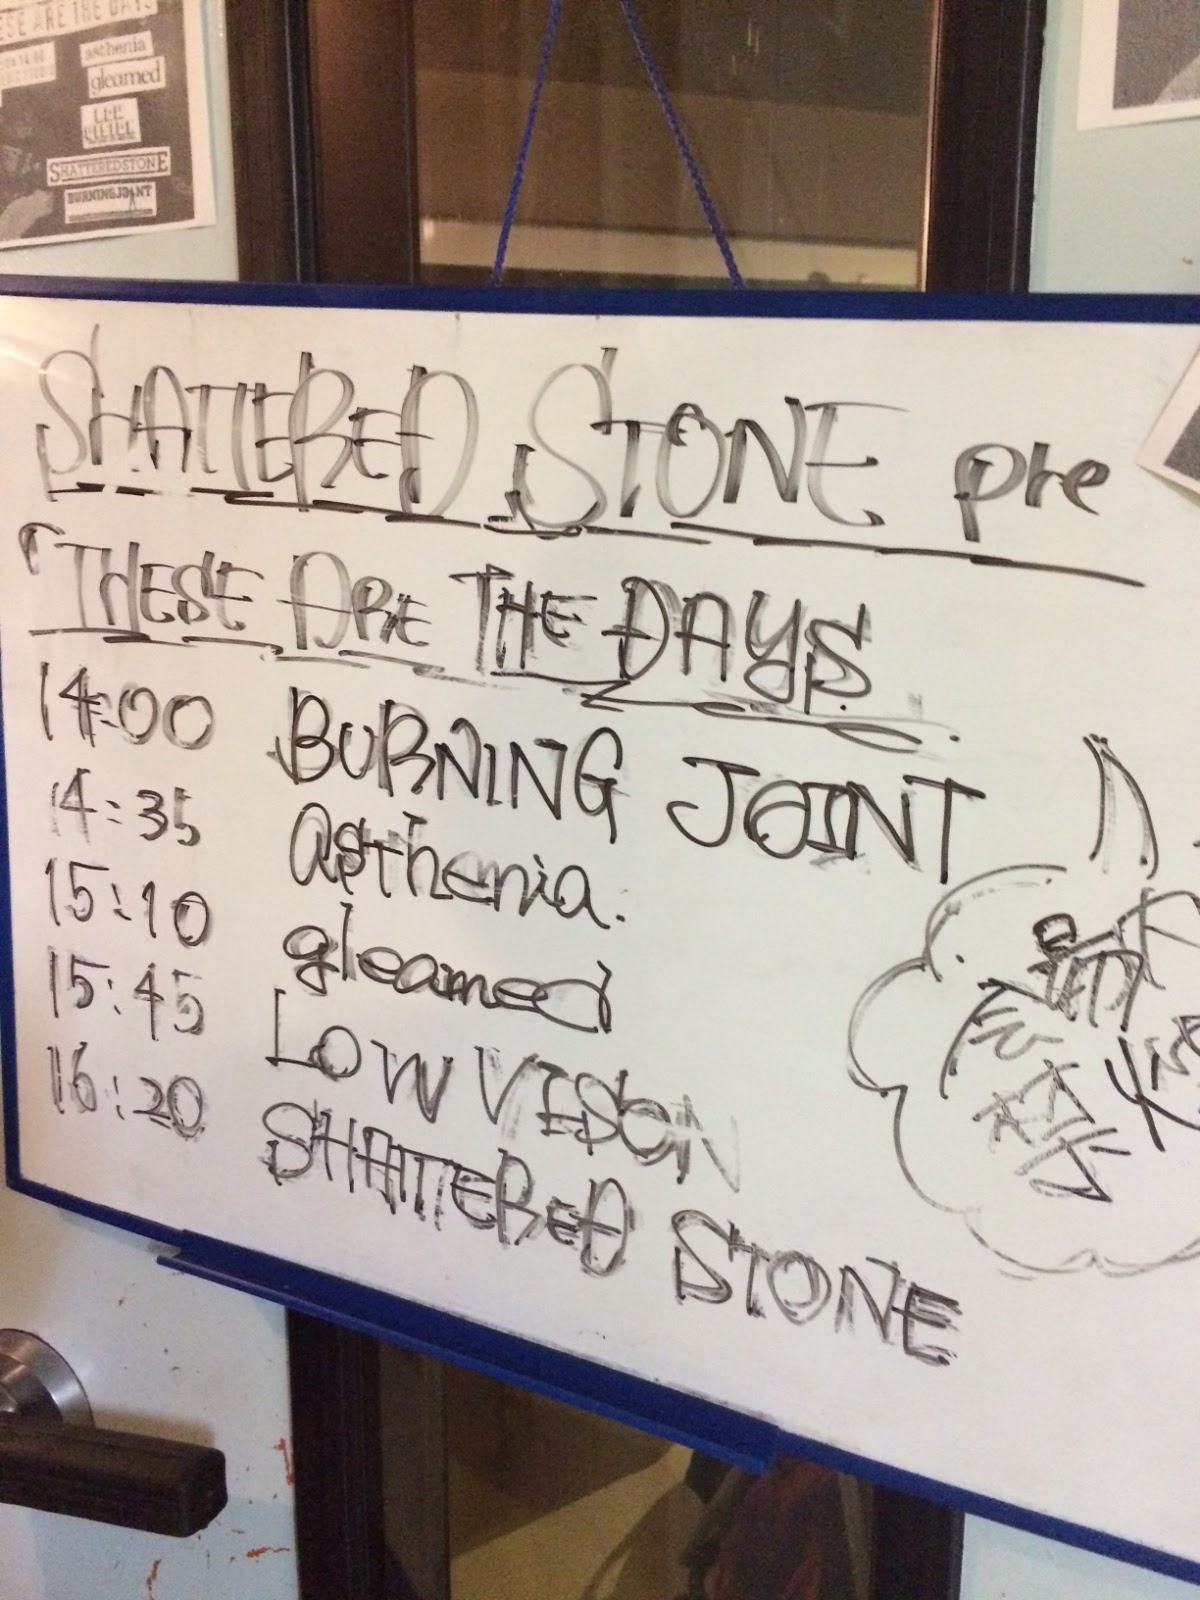 ESE ARE THE DAYS
asthenia
gleamed
SHATTEREDSTONE
BURNINGJOINT
SHATTERED STONE pre
「THESE ARE THE DAYS
14:00 BURNING JOINT
14:35 asthenia.
15:10 gleamed
15:45 LOW VISION
16:20 SHATTERED STONE